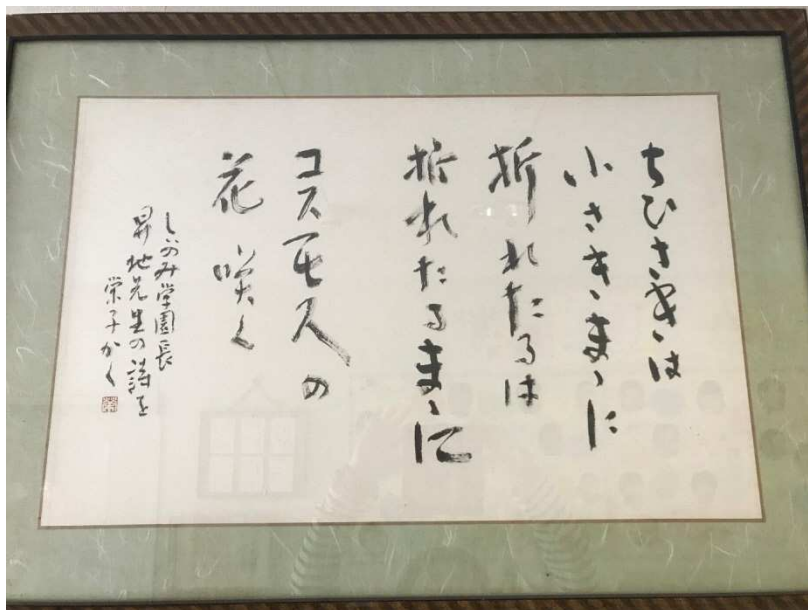 ちひさきは
小さきまゝに
折れたるは
折れたるまゝに
コスモスの
花咲く
しいのみ学園長
昇地先生の詩を
栄子かく